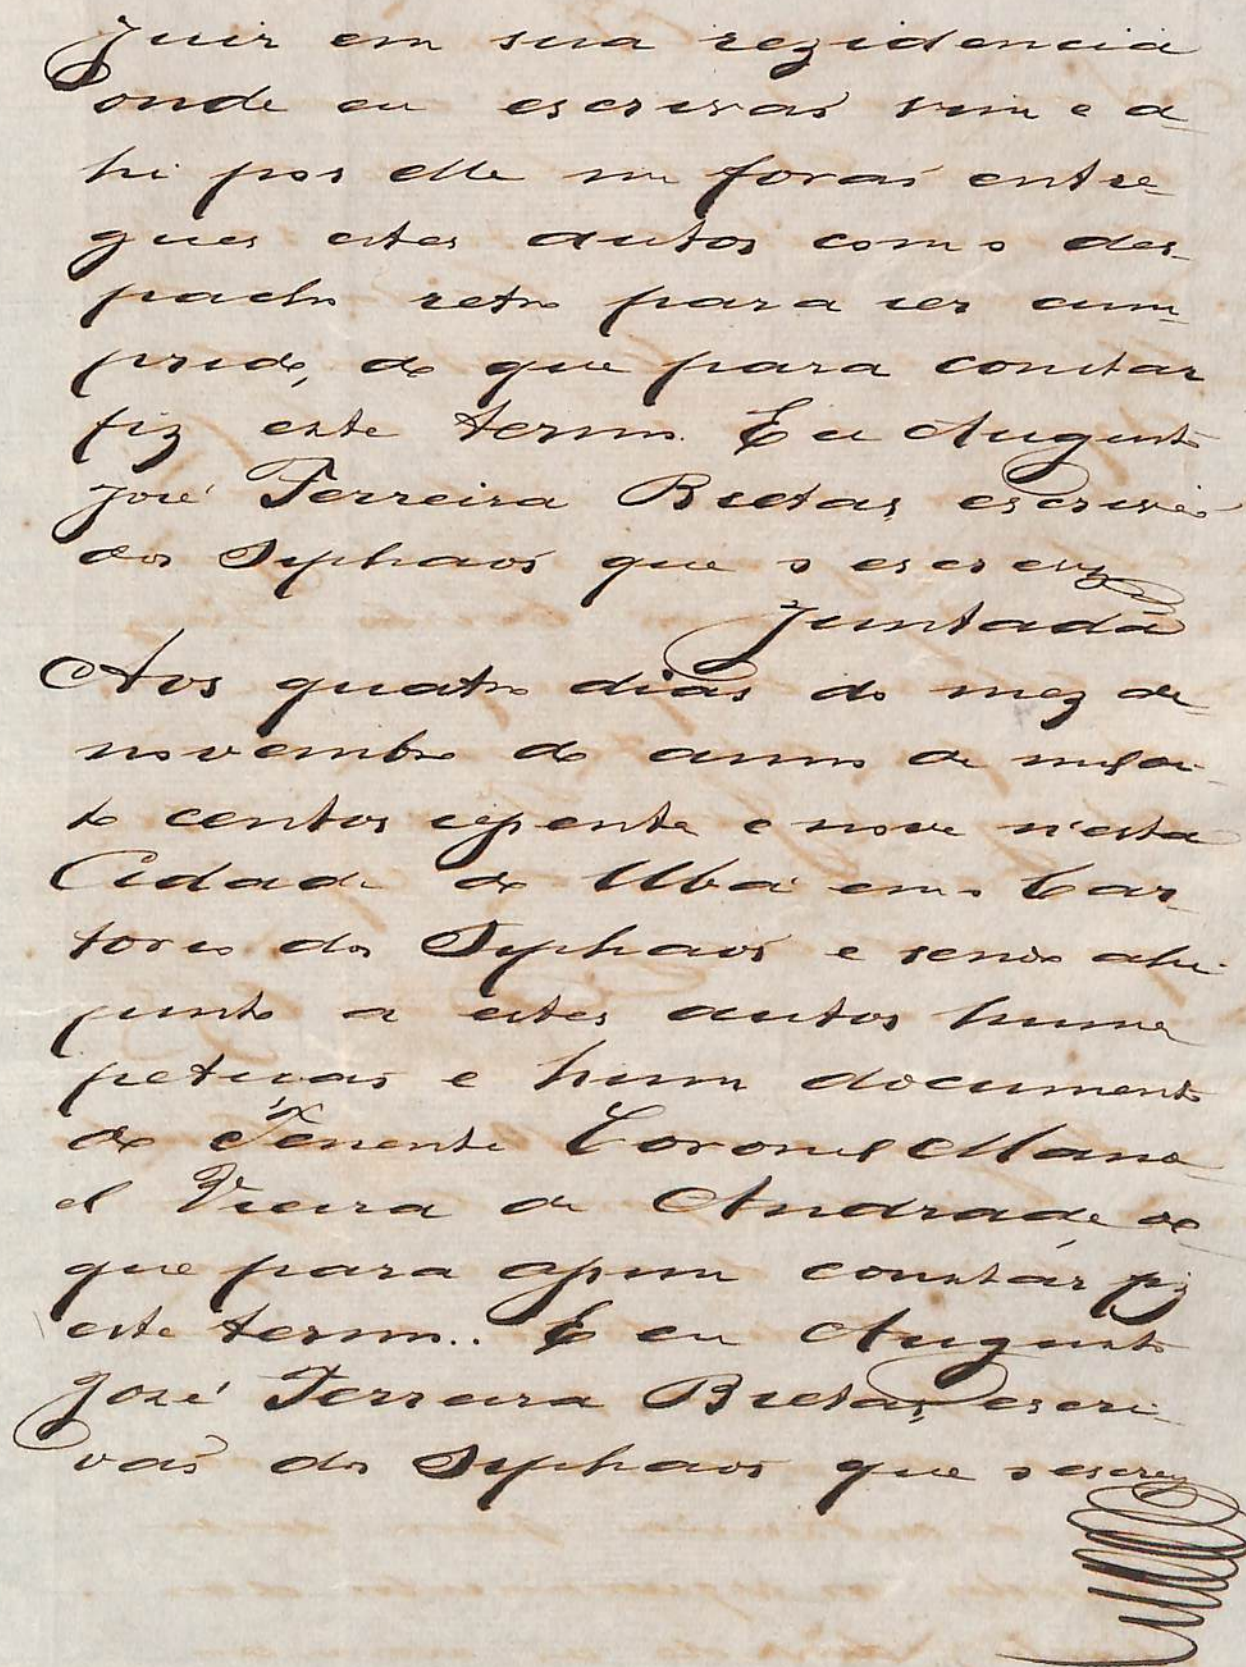 Juiz em sua rezidencia
onde eu escrivaõ vim e a-
hi por elle me foraõ entre-
gues estes autos com o des-
pacho retro para ser cum-
prido, do que para constar
fiz este termo. Eu Augusto
José Ferreira Bretas, escrivaõ
dos Orphaõs que o escrevy
Juntada
Aos quatro dias do mez de
novembro do anno de mil oi-
to centos sessenta e nove n'esta
Cidade do Ubá em o Car-
torio dos Orphaõs e sendo ahi
junto a estes autos huma
petiçaõ e hum documento
do Tenente Coronel Mano-
el Vieira de Andrade, do
que para assim constár fiz
este termo.. E eu Augusto
José Ferreira Bretas, escri-
vaõ dos Orphaõs que o escrevy